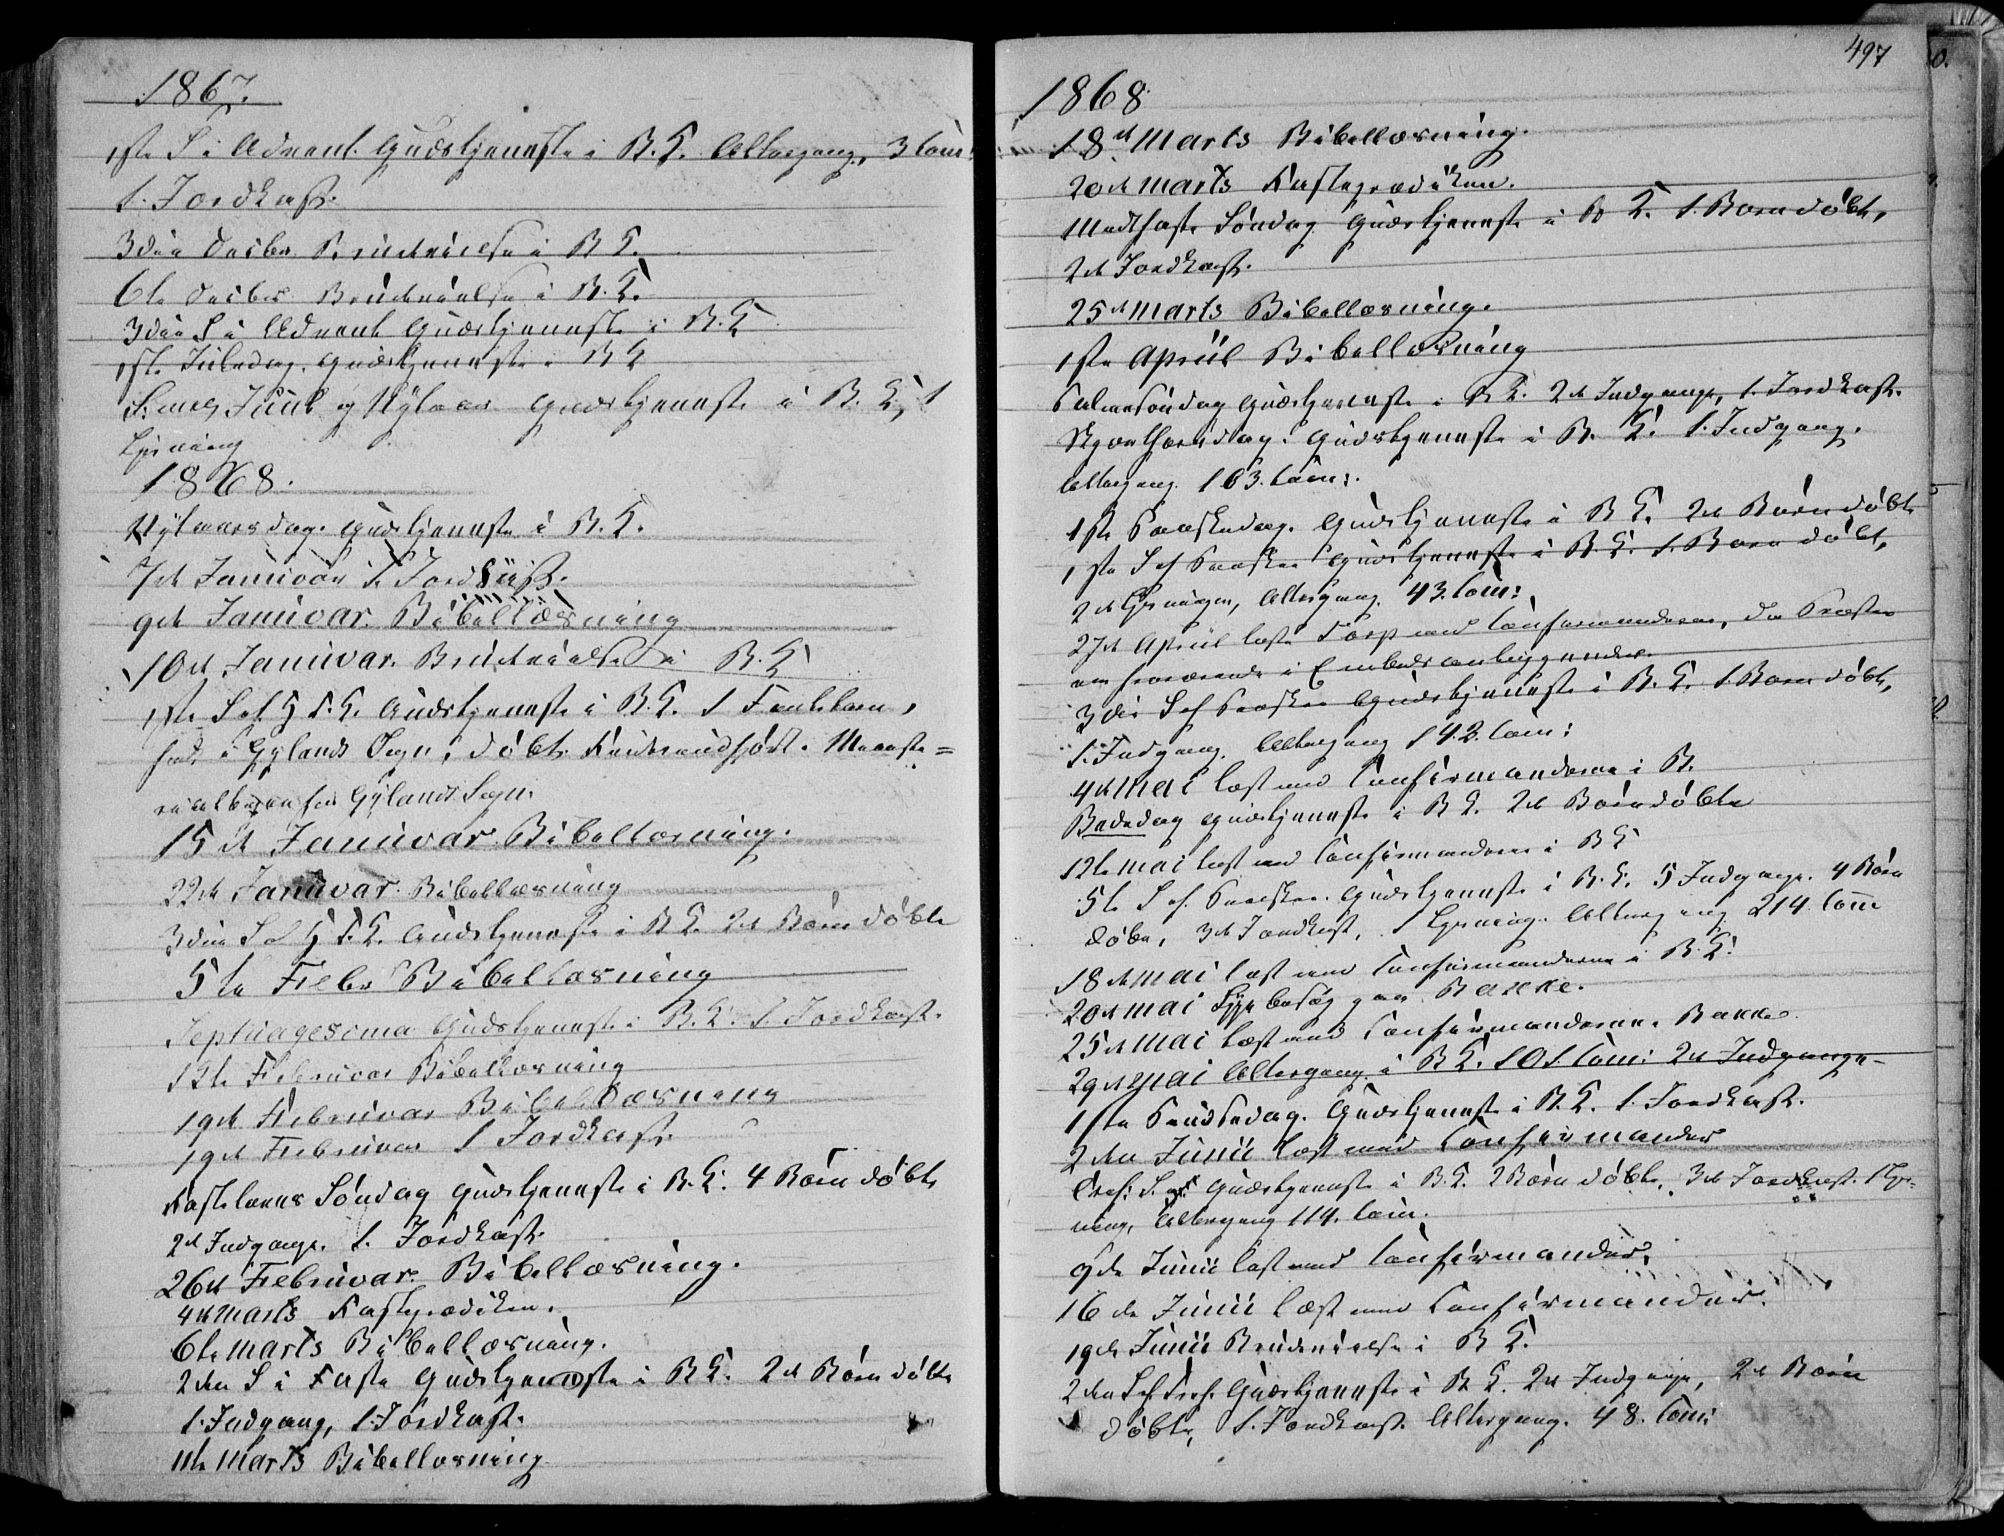 1867.
1ste S i Advent. Gudstjeneste i B.K. Altergang, 3 Com:
1. Jordkast.
3die Decbr. Brudevielse i B K.
6te Decbr Brudevielse i B.K.
3die S i Advent Gudstjeneste i B.K
1ste Juledag. Gudstjeneste i B K
S. mel. Juul og Nytaar Gudstjeneste i B. K, 1
Lysning
1868.
Nytaarsdag. Gudstjeneste i B.K.
7de Januvar 1.
9de Januvar. Bibellæsning
10de Januvar. Brudevielse i B.K
1ste S ef H.3.K. Gudstjeneste i B.K. 1
i Gylands Sogn, døbt.
for Gylands Sogn.
15de Januvar Bibellæsning.
22de Januvar. Bibellæsning
3die S ef H 3.K. Gudstjeneste i B K. 2de Børn døbte
5te Febr Bibellæsning
Septuagesima Gudstjeneste i B.K. 1. Jordkast.
12te Februvar Bibellæsning
19de Februvar Bibellæsning
19de Februvar 1 Jordkast
Fastelavns Søndag Gudstjeneste i B.K. 4 Børn døbte
2de Indgange. 1. Jordkast.
26de Februvar. Bibellæsning.
4de Marts Fasteprædiken.
6te Marts Bibellæsning.
2den S i Faste Gudstjeneste i B K. 2de Børn døbte
1. Indgang, 1. Jordkast.
11te Marts Bibellæsning
497
1868
18de Marts Bibellæsning.
20de Marts Fasteprædiken.
Midtfaste Søndag Gudstjeneste i B K. 1. Barn døbt,
2de Jordkast.
25de Marts Bibellæsning.
1ste Apriil Bibellæsning
Palmesøndag Gudstjeneste i B K. 2de Indgange, 1. Jordkast.
Skjærthorsdag. Gudstjeneste i B. K. 1. Indgang.
Altergang 103. Com:.
1ste Paaskedag. Gudstjeneste i B K. 2de Børn døbte
1ste S ef Paaske Gudstjeneste i B.K. 1. Barn døbt,
2de Lysninger, Altergang. 43. Com:
27de Apriil læste Torp med Confirmanderne, da Præsten
var fraværende i Embedsanliggender.
3die S ef Paaske Gudstjeneste i B.K. 1. Barn døbt,
1. Indgang. Altergang 142. Com:
4de Mai læst med Confirmanderne i B.
Bededag Gudstjeneste i B K. 2de Børn døbte
12te Mai læst med Confirmanderne i B K
5te S ef. Paaske. Gudstjeneste i B.K. 5 Indgange. 4 Børn
døbte, 3de Jordkast, 1 Lysning. Altergang 214 Com
18de Mai læst med Confirmanderne i B.K.
20de Mai Sygebesøg paa Bakke.
25de Mai læst med Confirmanderne. Bakke
29de Mai Altergang i B K. 101 Com: 2de Indgange
1ste Pindsedag. Gudstjeneste i B.K. 1. Jordkast.
2den Junii læst med Confirmander
Tref. S. Gudstjeneste i B.K. 2 Børn døbte, 3de Jordkast. 1 Lys=
ning, Altergang 114. Com.
9de Junii læst med Confirmander.
16de Junii læst med Confirmander.
19de Junii Brudevielse i B K.
2den S ef Tref. Gudstjeneste i B K. 2de Indgange, 2de Børn
døbte, 1. Jordkast. Altergang. 48. Com: